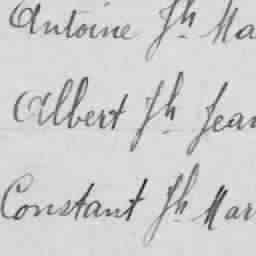 Antoine Jh Ma
Albert Jh Jean
Constant Jh Mar